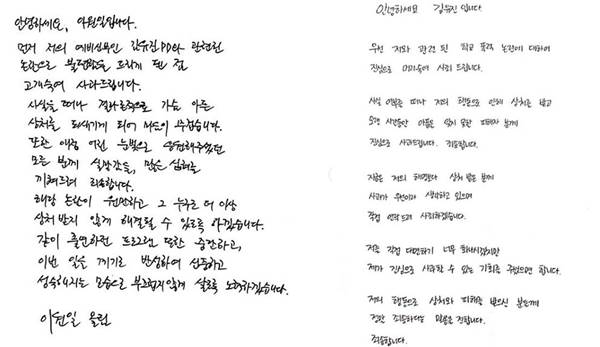 안녕하세요, 이원일입니다.
먼저 저의 예비신부인 김유진PD와 관련된
논란으로 불편함을 드리게 된 점
고개숙여 사과드립니다.
사실을 떠나 결과론적으로 가슴 아픈
상처를 되새기게 되어 마음이 무겁습니다.
또한 애정 어린 눈빛으로 응원해주셨던
모든 분께 실망감을, 많은 심려를
끼쳐드려 죄송합니다.
해당 논란이 원만하고 그 누구도 더 이상
상처 받지 않게 해결될 수 있도록 하겠습니다.
같이 출연하던 프로그램 또한 중단하고,
이번 일을 계기로 반성하여 신중하고
성숙해지는 모습으로 부끄럽지 않게 살도록 노력하겠습니다.
이원일 올림
안녕하세요 김유진 입니다.
우선 저와 관련 된 학교 폭력 논란에 대하여
진심으로 머리숙여 사죄 드립니다.
사실 여부를 떠나 저의 행동으로 인해 상처를 받고
오랜 시간동안 아픔을 잊지 못한 피해자 분께
진심으로 사과드립니다. 죄송합니다.
지금은 저의 해명보다 상처 받은 분께
사과가 우선이라 생각하고 있으며
직접 연락드려 사죄하겠습니다.
저를 직접 대면하기 너무 화나시겠지만
제가 진심으로 사과할 수 있는 기회를 주셨으면 합니다.
저의 행동으로 상처와 피해를 받으신 분들께
정말 죄송하다는 말씀을 전합니다.
죄송합니다.